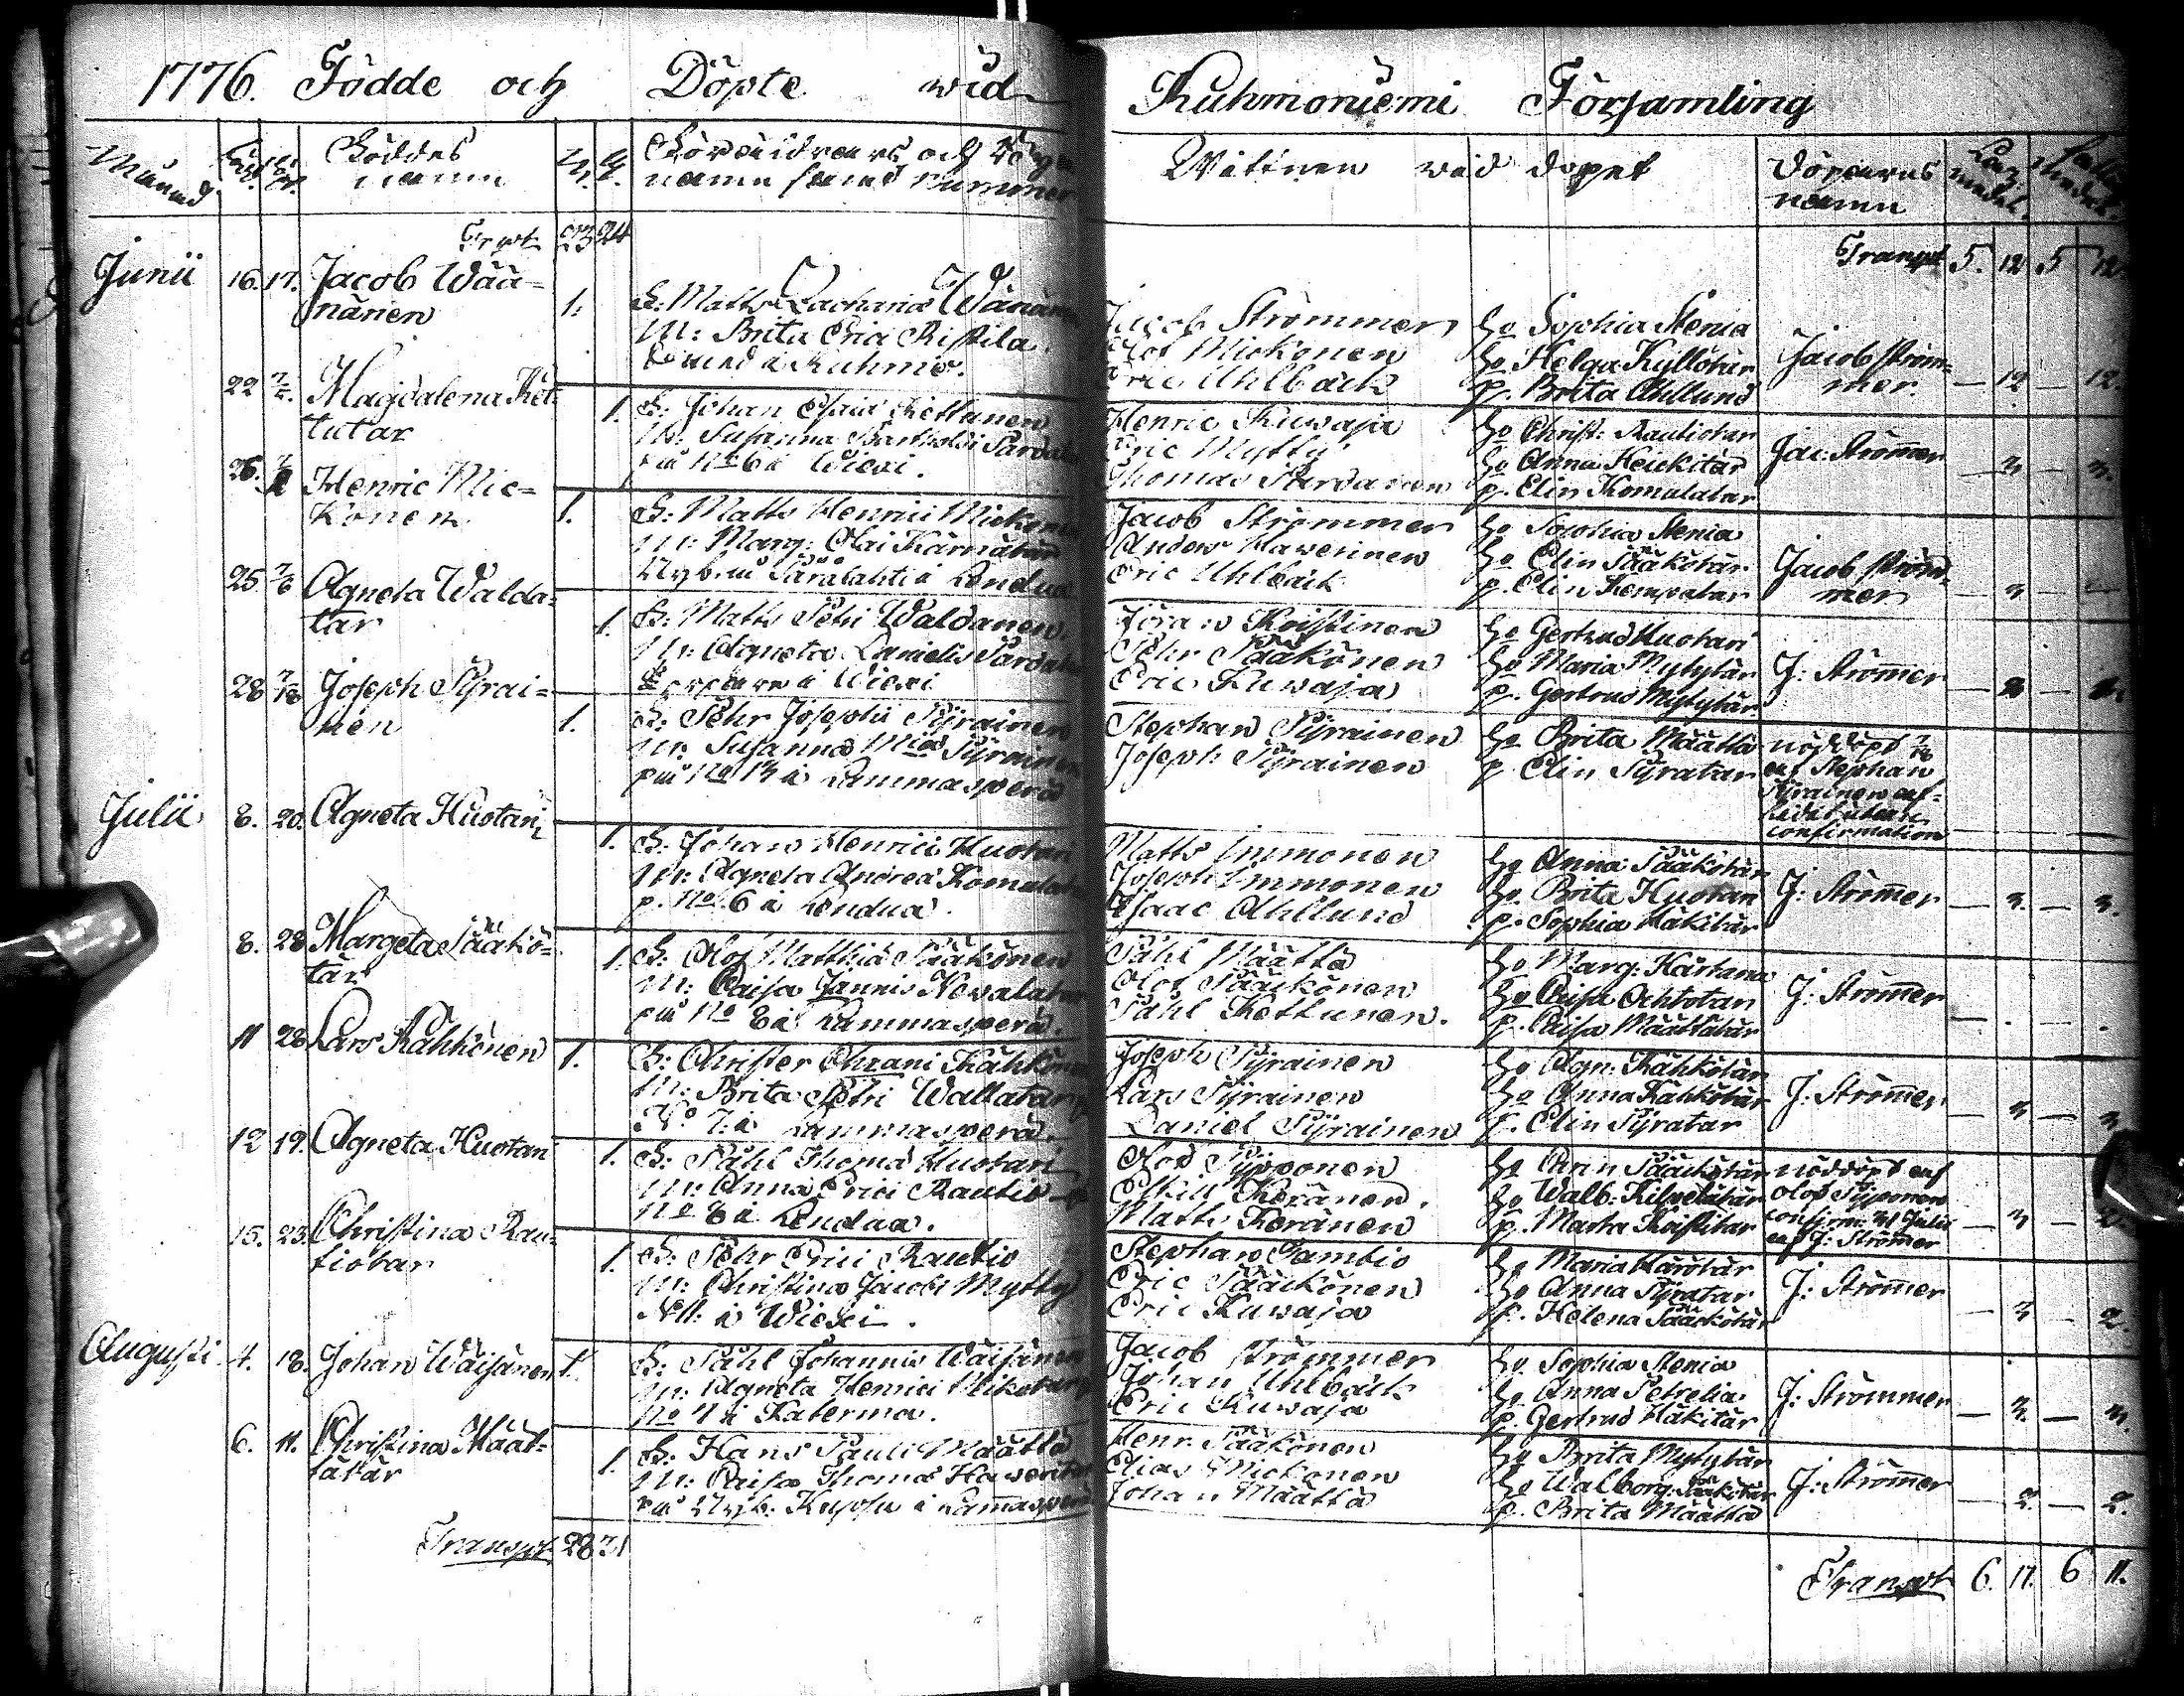 1776. Födde och Döpte wid Kuhmoniemi Församling
Månad
Föddes namn
Föräldrars och Byns namn samt nummer
Wittnen wid dopet
Döparens namn
Trpt 23 24
Transpt 5. 12 5 12
Junii 16. 17. Jacob Wää=
nänen
1.
F: Matts Zachariæ Wänänen
M: Brita Erici Ristila
Kuhmo.
Jacob Strömmer
Olof Mickonen
Eric Uhlbäck
Ho Sophia Stenia
Ho Helga Kyllötär
p. Brita Ahllund
Jacob Ström-
mer.
12 12.
22 Magdalena Ket=
tutar
1.
F: Johan Esaiæ Kettunen
M: Susanna Bartholdi
på No 6 i Wiexi.
Henric Kuwaja
Eric Mytty
Thomas Pardanen
Ho Christ: Rautiotar
Ho Anna Heickitär
p. Elin Komulatar
Jac: Strömer
3 3.
26. Henric Mic=
konen
1.
F: Matts Henrici Mickonen
M: Marg: Olai Kärnätär
Nyb. på Särälahti i Lendua
Jacob Strömmer
Anders Hawerinen
Eric Uhlbäck
Ho Sophia Stenia
Ho Elin Pääkötär
p. Elin Kempatar
Jacob Ström-
mer
3
25. Agneta Walda=
tar
1.
F: Matts Petri Waldanen.
M: Agneta Danielis
i Wiexi
Jöran Kristinen
Pehr Pääkönen
Eric Kuwaja
Ho Gertrud Huotari
Ho Maria Mytytär
p. Gertrud Mytytär
J: Strömer
28 Joseph Pyrai=
nen
1.
F: Pehr Josephi Pyrainen
M: Susanna Pyrainen
på No 13 i Lammasperä
Stephan Pyrainen
Joseph Pyrainen
Ho Brita Määttä
p. Elin Pyratar
nöddöpt
af Stephan
Pyrainen af-
confirmation
Julii 8. 20. Agneta Huotari
1.
F: Johan Henrici Huotari
M: Agneta Andreæ Komulatar
p. No 6 i Lendua.
Matts Immonen
Joseph Immonen
Isaac Ahllund
Ho Anna Pääkötär
Ho Brita Huotari
p. Sophia Häkitär
J: Strömer
3. 3.
8. 28 Margeta Pääkö=
tär
1.
F: Olof Matthiæ Pääkönen
M: Caisa Joannis Kewalatar
på No 8 i Lammasperä.
Påhl Määttä
Olof Pääkönen
Påhl Kettunen.
Ho Marg: Karhana
Ho Caisa Ochtotar
p. Caisa Määttätär
J: Strömer
11 28 Lars Kähkönen
1.
F: Christer Chrani Kähkönen
M: Brita Petri Wallatar
No 7 i Lammasperä.
Joseph Pyrainen
Lars Pyrainen
Daniel Pyrainen
Ho Agn: Kähkötär
Ho Anna Kähkötär
p. Elin Pyratar
J: Strömer
3 3
12 19. Agneta Huotari
1.
F: Påhl Thomæ Huotari
M: Anna Erici Rautio
No 8 i Lendua.
Olof Pyponen
Eskill Keränen.
Matts Keränen
Ho Carin Pääkötär
Ho Walb: Kilpelätär
p. Marha Kristitar
nöddöpt af
Olof Pyponen
confirm: 21 Julii
af J: Strömer
3
15. 23. Christina Rau=
tiotar
1.
F: Pehr Erici Rautio
M: Christina Jacobi Mytty
No 11 i Wiexi.
Stephan Tambio
Eric Pääkönen
Eric Kuwaja
Ho Maria
Ho Anna Pyratar
p. Helena Pääkötär
J: Strömer
3 2.
Augusti 4. 18. Johan Wäisänen
1.
F: Påhl Johannis Wäisänen
M: Agneta Henrici Mikotar
No 4 i Katerma.
Jacob Strömmer
Johan Uhlbäck
Eric Kuwaja
Ho Sophia Stenia
Ho Anna Petrelia
p. Gertrud Häkitär
J: Strömmer
3. 3.
6. 11. Christina Määt=
tätär
1.
F: Hans Pauli Määttä
M: Caisa Thomæ Haweritar
på Nyb. Kuppu i Lamasperä
Henr. Pääkönen
Elias Mickonen
Johan Määttä
Ho Brita Mytytär
Ho Walborg Pääkötär
p. Brita Määttä
J: Strömer
2. 2.
Transpt 28 31
Transpt 6. 17. 6 11.